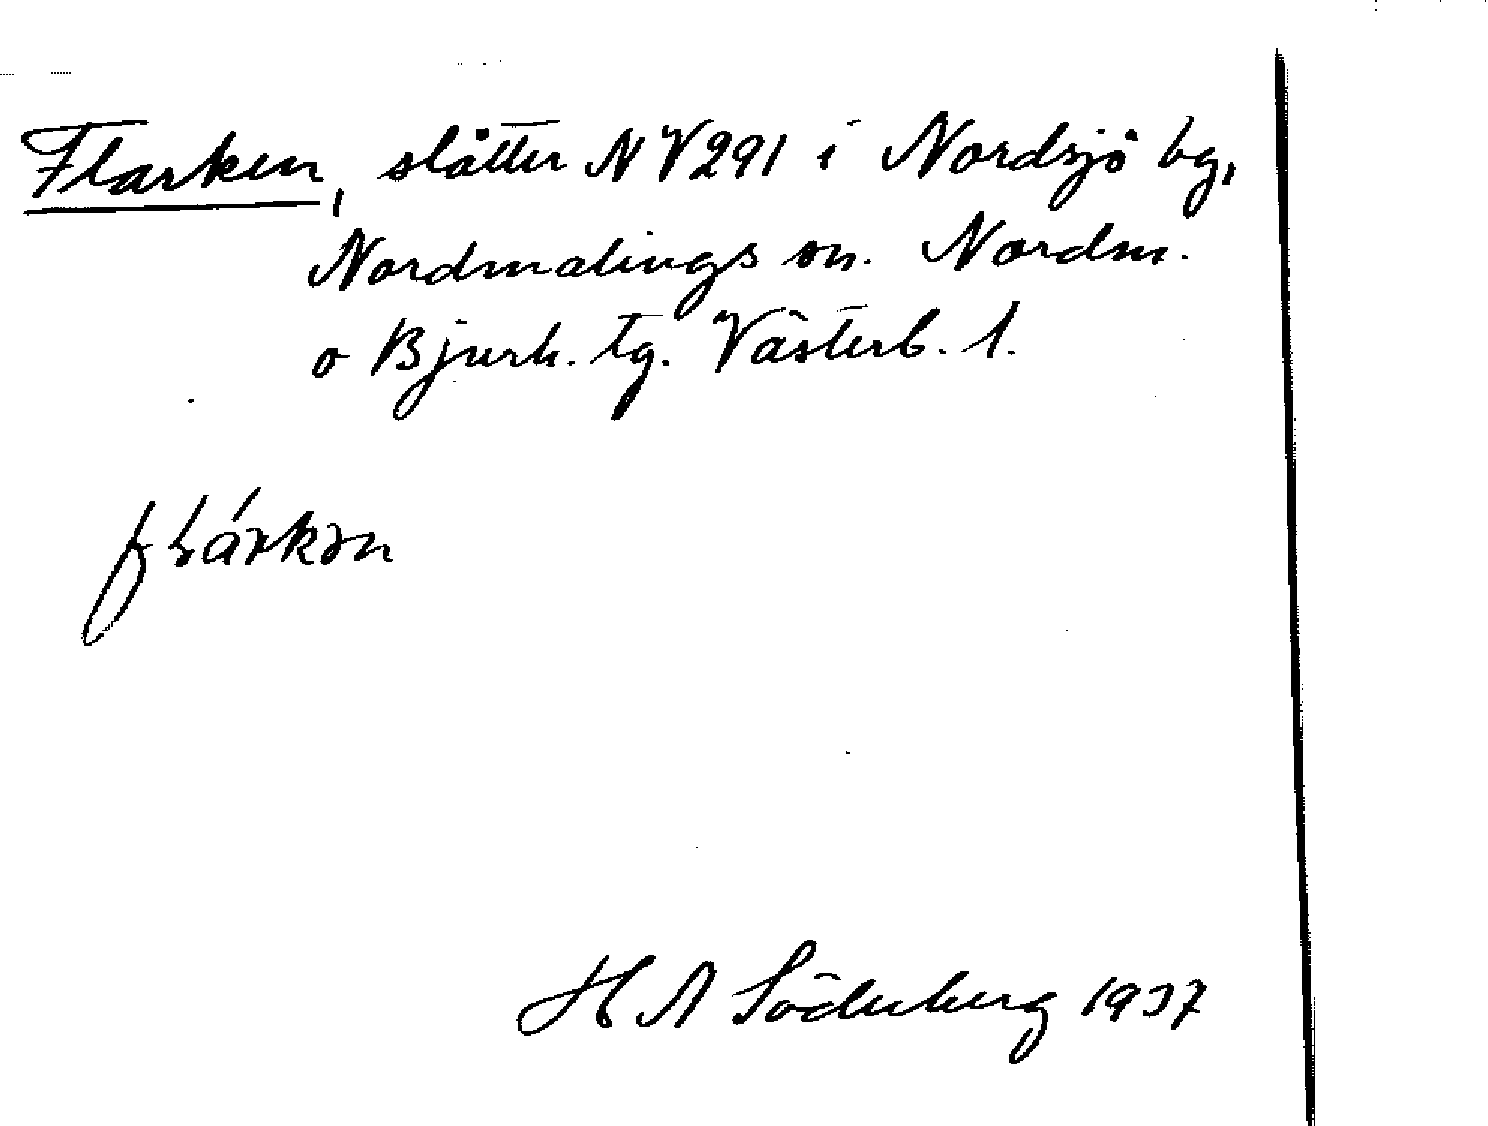 Flarken, slåtter NV291 i Nordsjö bg,
Nordmalings sn. Nordm.
o Bjurh. tg. Västerb. l.
flárkən
H A Söderberg 1937